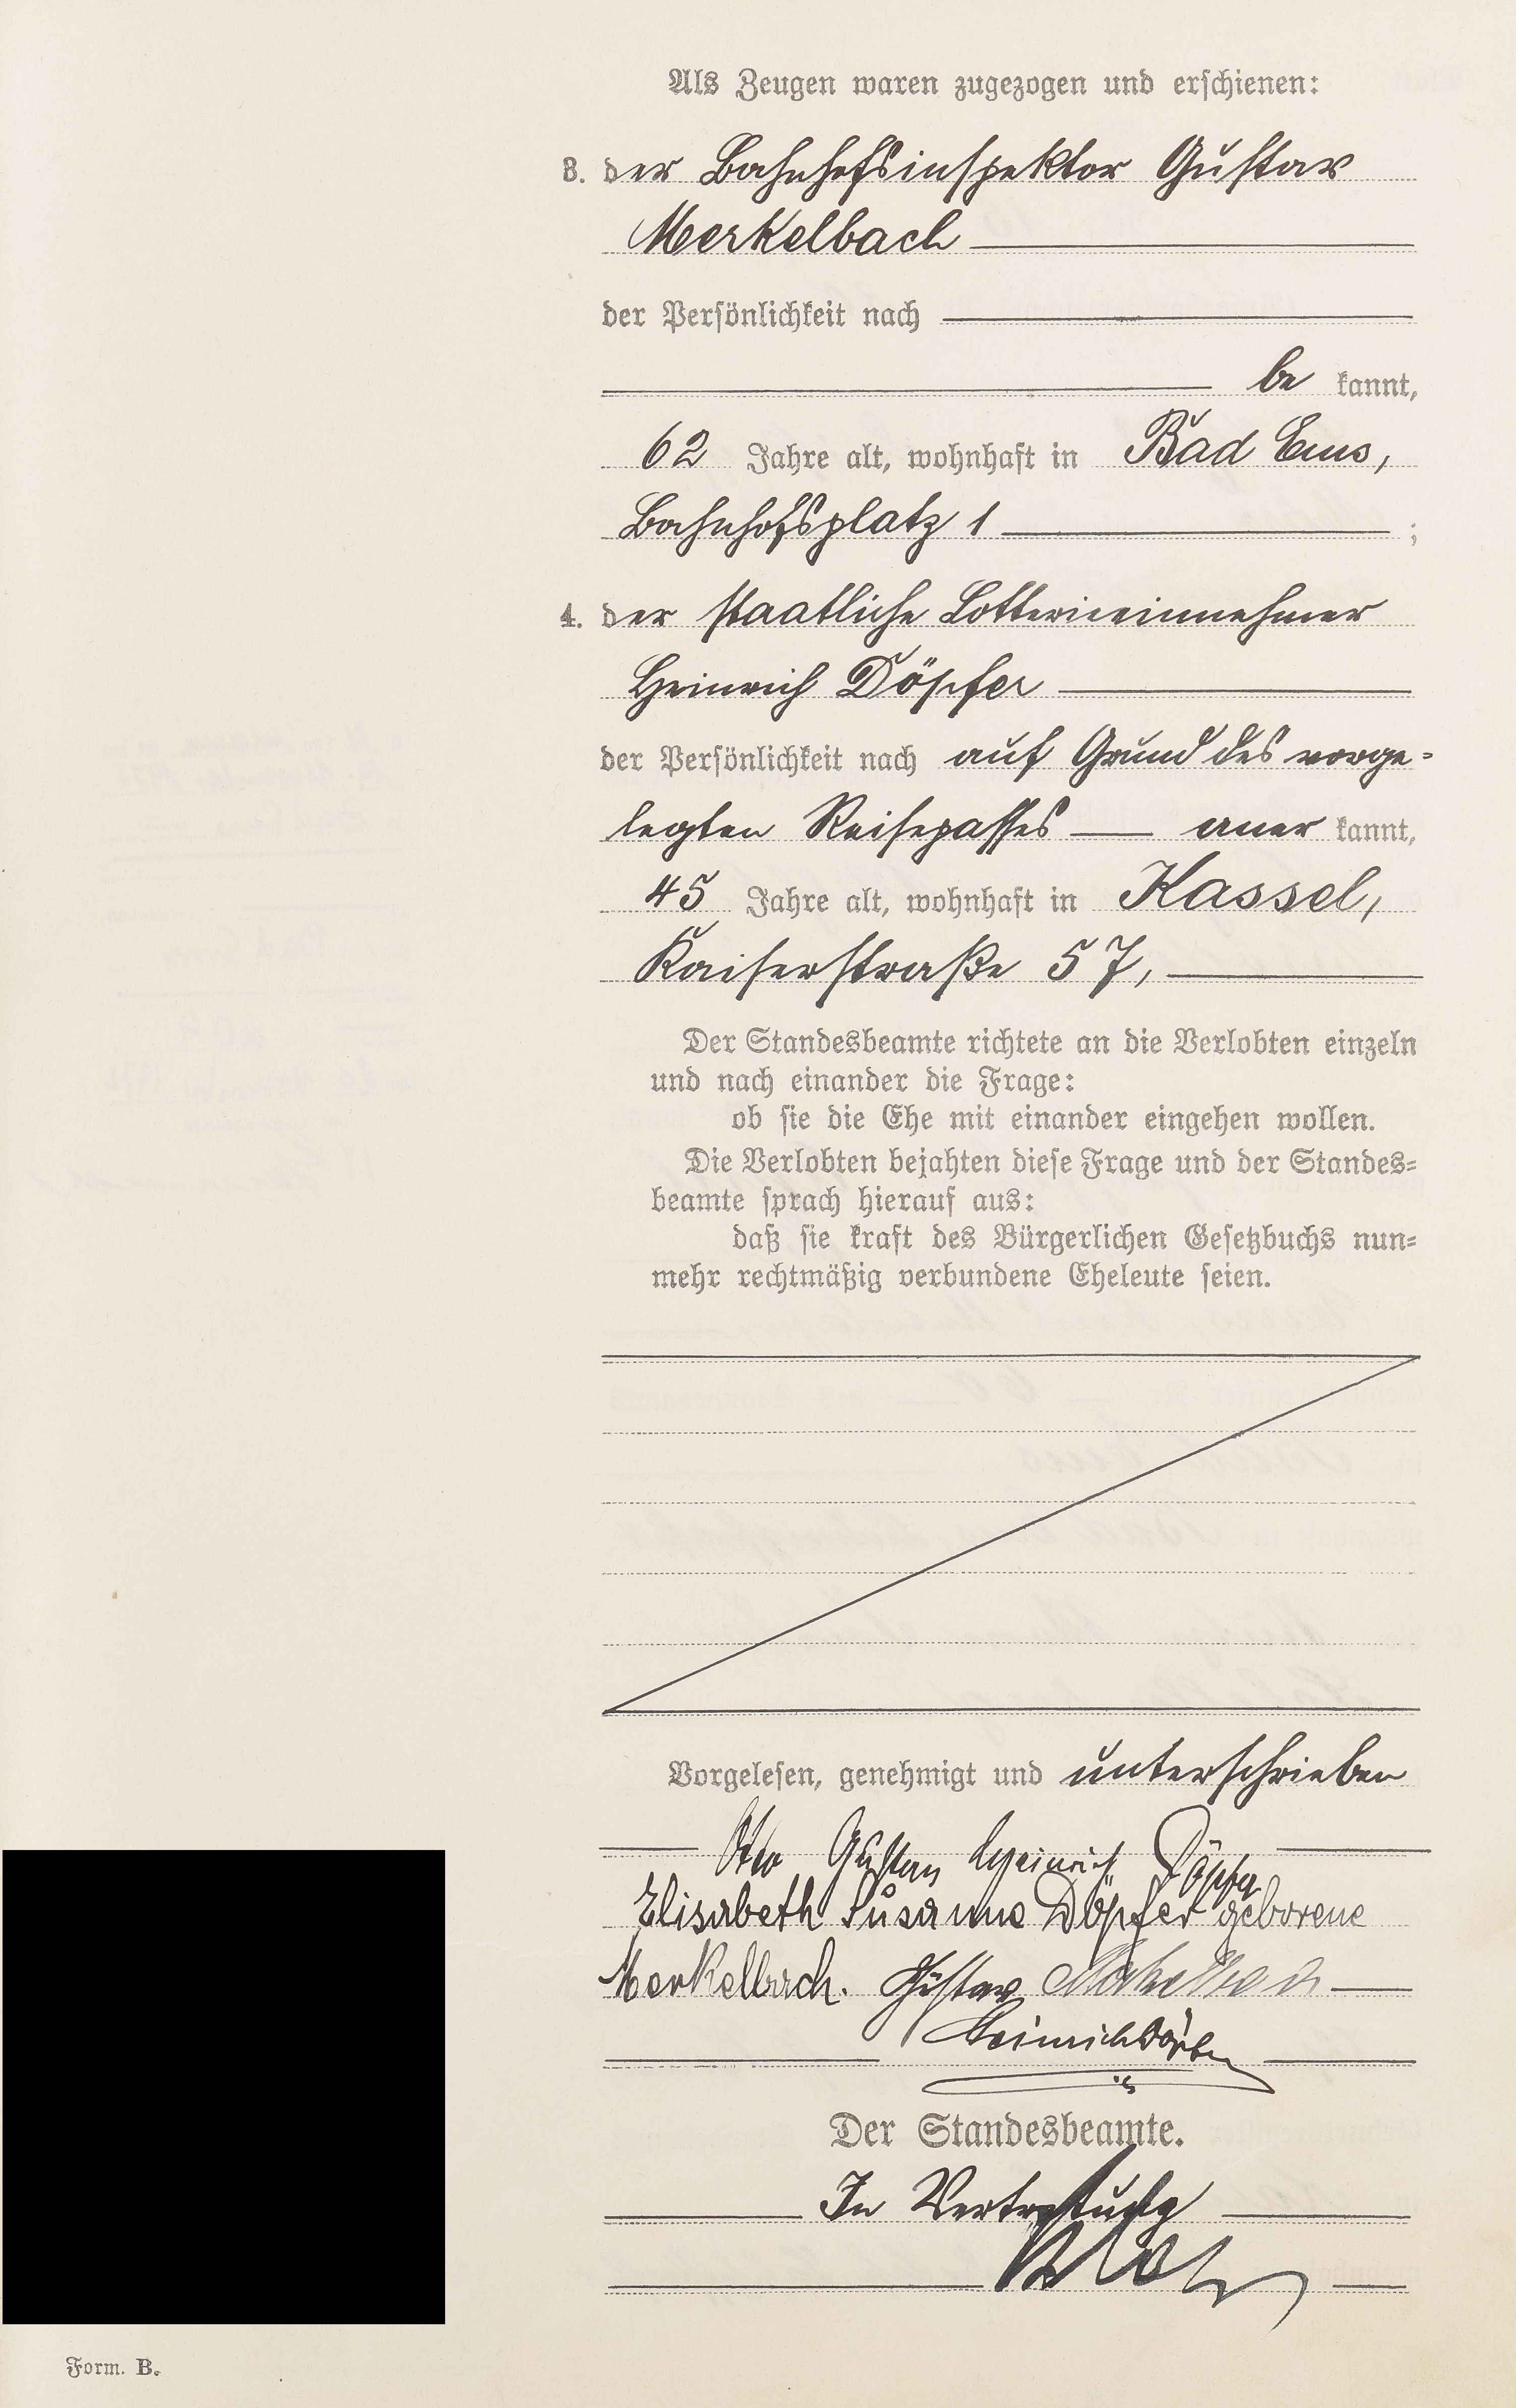 Als Zeugen waren zugezogen und erschienen:
3. der Bahnhofsinspektor Gustav
Merkelbach
der Persönlichkeit nach
be kannt,
62 Jahre alt, wohnhaft in Bad Ems,
Bahnhofsplatz 1 ;
4. der staatliche Lotterieeinnehmer
Heinrich Döpfer
der Persönlichkeit nach auf Grund des vorge-
legten Reisepasses aner kannt,
45 Jahre alt, wohnhaft in Kassel,
Kaiserstraße 57,
Der Standesbeamte richtete an die Verlobten einzeln
und nach einander die Frage:
ob sie die Ehe mit einander eingehen wollen.
Die Verlobten bejahten diese Frage und der Standes-
beamte sprach hierauf aus:
daß sie kraft des Bürgerlichen Gesetzbuchs nun-
mehr rechtmäßig verbundene Eheleute seien.
Vorgelesen, genehmigt und unterschrieben
Otto Gustav Heinrich Döpfer
Elisabeth Susanne Döpfer geborene
Merkelbach. Gustav Merkelbach
Heinrich Döpfer
Der Standesbeamte.
In Vertretung
Form. B.